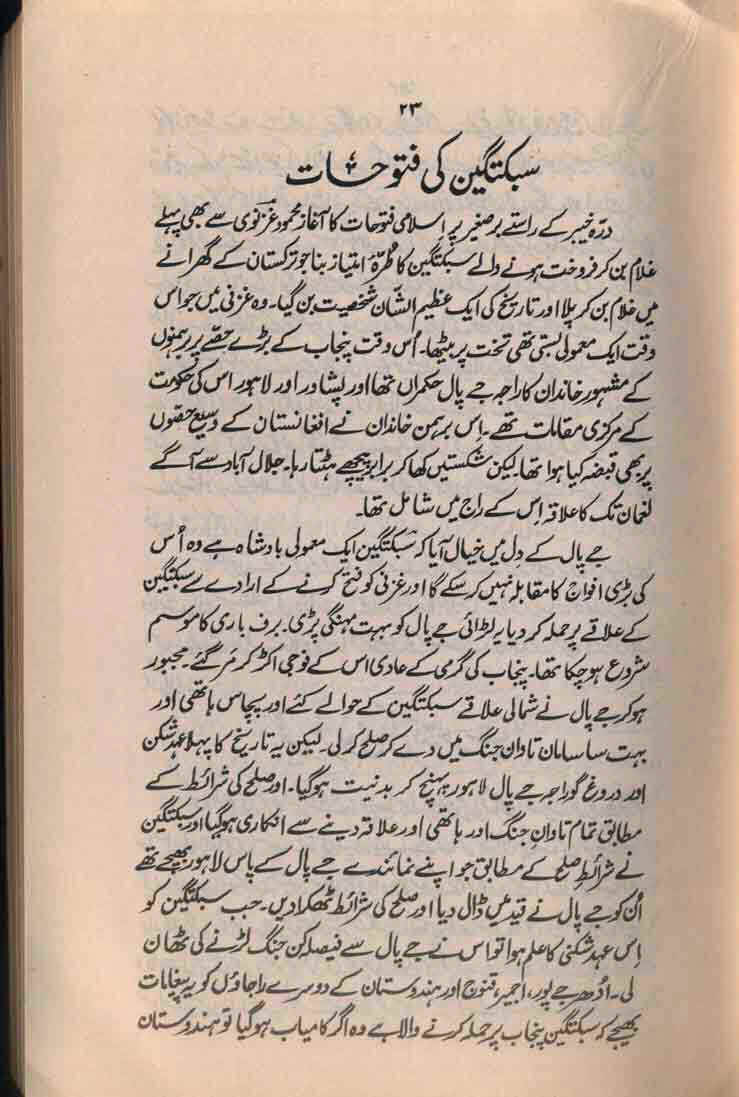 ۲۳
سبکتگین کی فتوحات
درّہ خیبر کے راستے برصغیر پر اسلامی فتوحات کا آغاز محمود غزنوی سے بھی پہلے
غلام بن کر فروخت ہونے والے سبکتگین کا طُرّۂ امتیاز بنا جو ترکستان کے گھرانے
میں غلام بن کر پلا اور تاریخ کی ایک عظیم الشّان شخصیت بن گیا۔ وہ غزنی میں جو اس
وقت ایک معمولی بستی تھی تخت پر بیٹھا۔ اُس وقت پنجاب کے بڑے حصّے پر برہمنوں
کے مشہور خاندان کا راجہ جے پال حکمراں تھا اور پشاور اور لاہور اس کی حکومت
کے مرکزی مقامات تھے۔ اِس برہمن خاندان نے افغانستان کے وسیع حصّوں
پر بھی قبضہ کیا ہوا تھا لیکن شکستیں کھا کر برابر پیچھے ہٹتا رہا۔ جلال آباد سے آگے
لغمان تک کا علاقہ اِس کے راج میں شامل تھا۔
جے پال کے دل میں خیال آیا کہ سبکتگین ایک معمولی بادشاہ ہے وہ اُس
کی بڑی افواج کا مقابلہ نہیں کر سکے گا اور غزنی کو فتح کرنے کے ارادے سے سبکتگین
کے علاقے پر حملہ کر دیا یہ لڑائی جے پال کو بہت مہنگی پڑی۔ برف باری کا موسم
شروع ہو چکا تھا۔ پنجاب کی گرمی کے عادی اس کے فوجی اکڑ کر مر گئے۔ مجبور
ہو کر جے پال نے شمالی علاقے سبکتگین کے حوالے کئے اور پچاس ہاتھی اور
بہت سا سامان تاوان جنگ میں دے کر صلح کر لی۔ لیکن یہ تاریخ کا پہلا عہد شکن
اور دروغ گو راجہ جے پال لاہور پہنچ کر بدنیت ہو گیا۔ اور صلح کی شرائط کے
مطابق تمام تاوانِ جنگ اور ہاتھی اور علاقہ دینے سے انکاری ہو گیا اور سبکتگین
نے شرائطِ صلح کے مطابق جو اپنے نمائندے جے پال کے پاس لاہور بھیجے تھے
اُن کو جے پال نے قید میں ڈال دیا اور صلح کی شرائط ٹھکرا دیں۔ جب سبکتگین کو
اِس عہد شکنی کا علم ہوا تو اس نے جے پال سے فیصلہ کن جنگ لڑنے کی ٹھان
لی۔ اُدھر جے پور، اجمیر، قنوج اور ہندوستان کے دوسرے راجاؤں کو یہ پیغامات
بھیجے کہ سبکتگین پنجاب پر حملہ کرنے والا ہے وہ اگر کامیاب ہو گیا تو ہندوستان